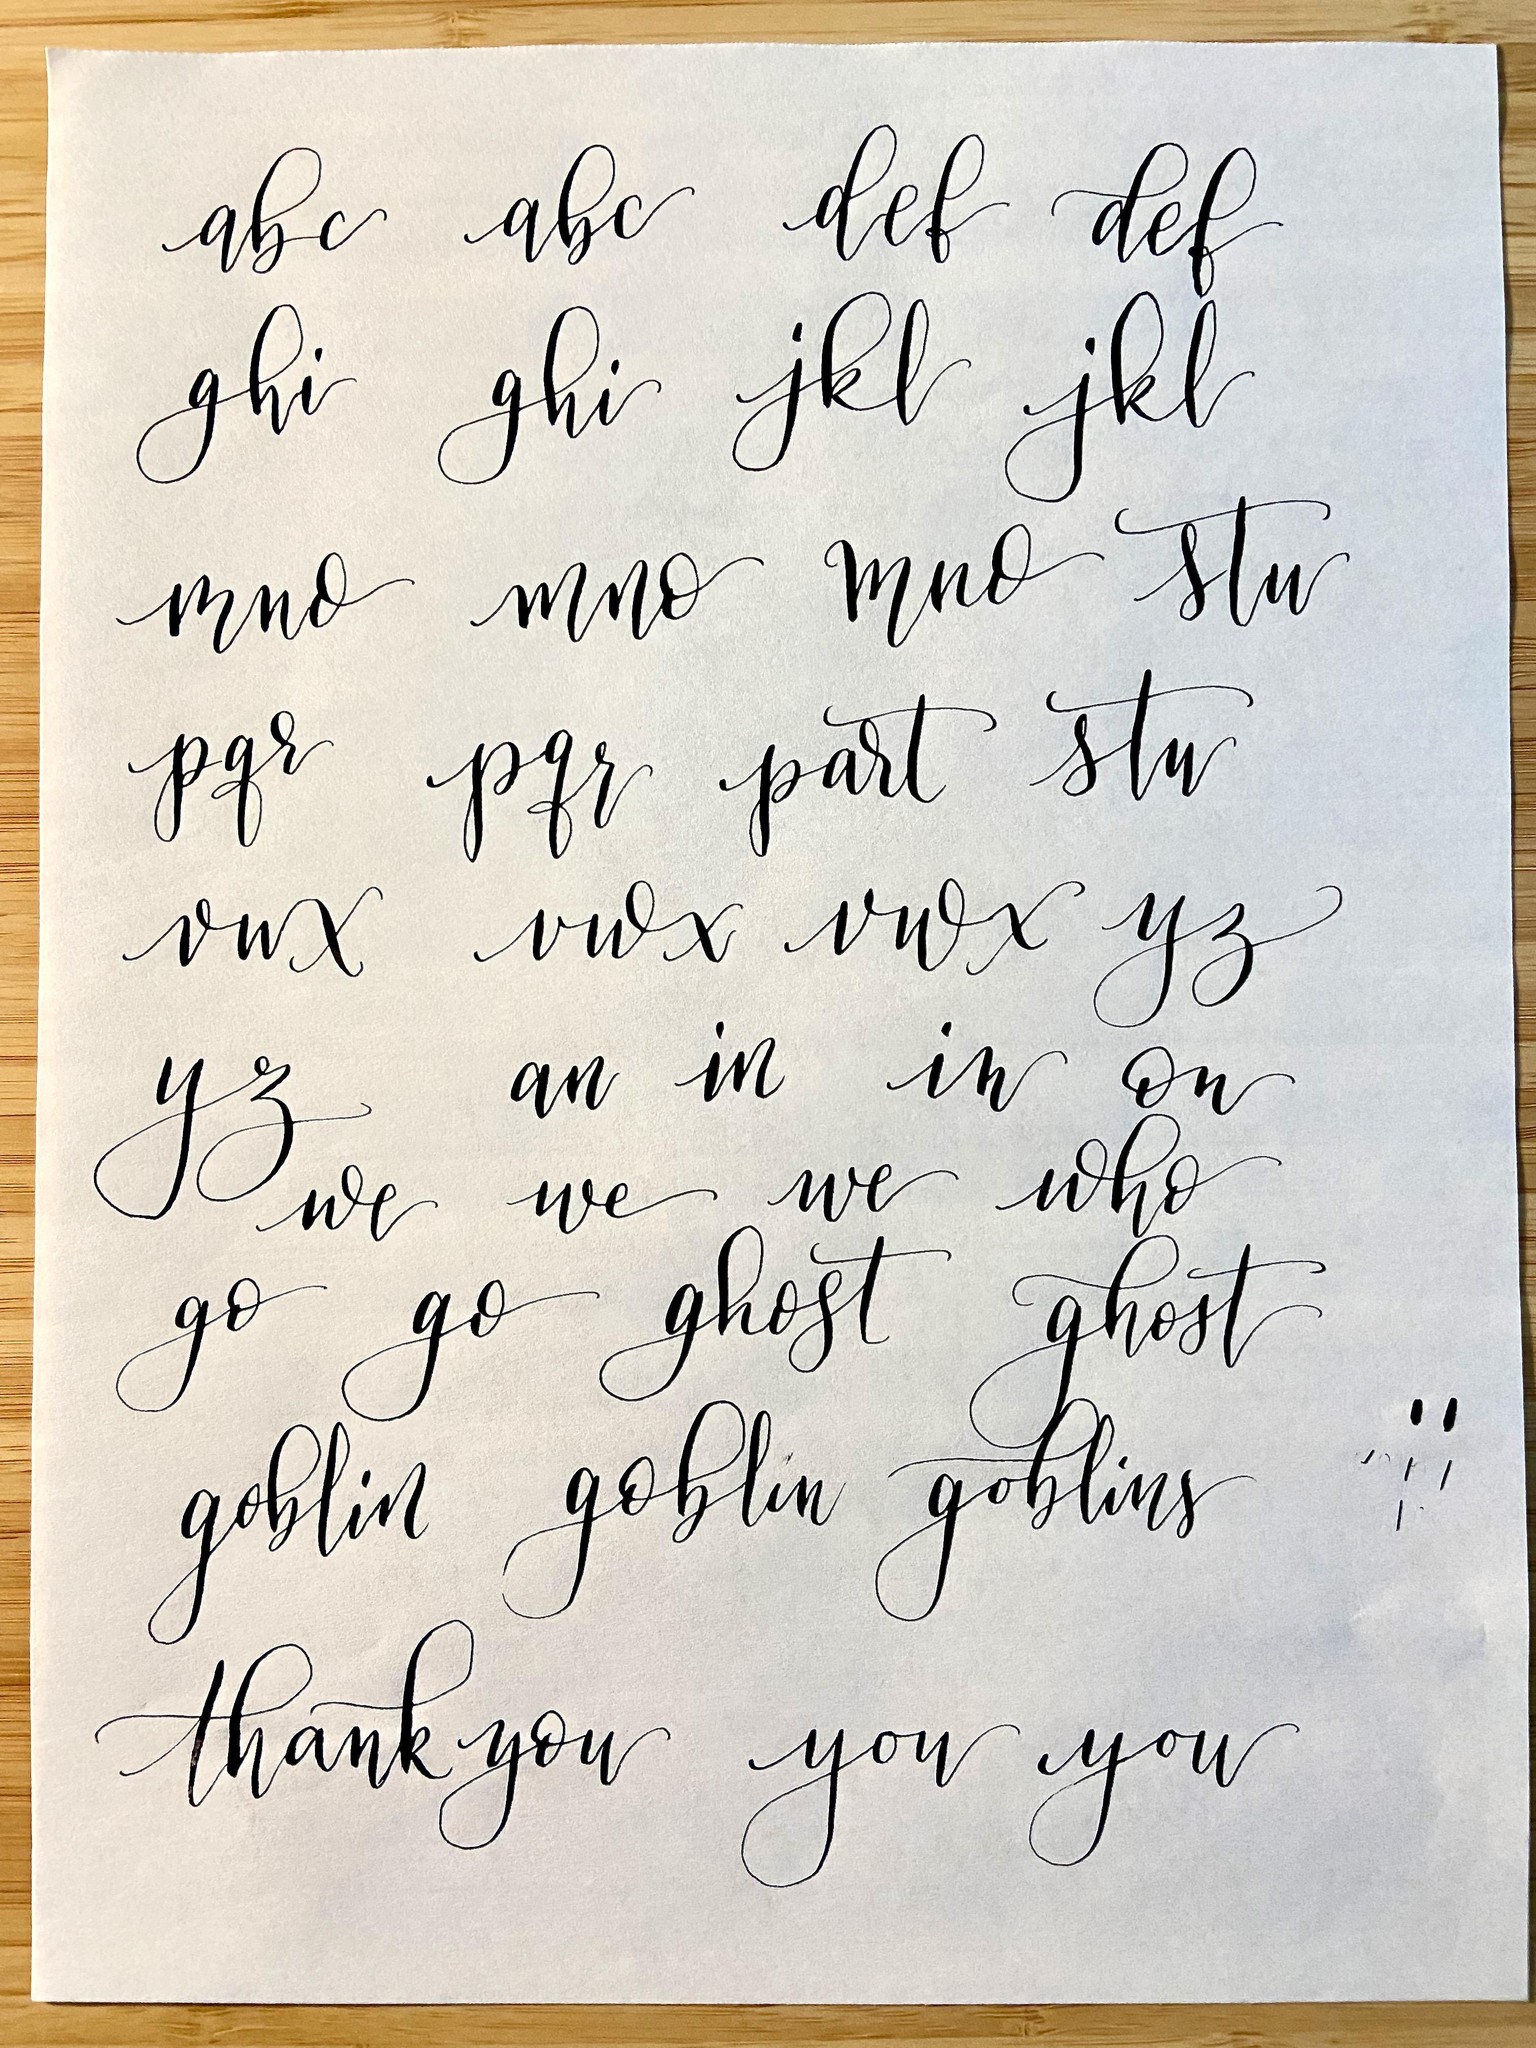 abc abc def def
ghi ghi jkl jkl
mno mno mno stu
pqr pqr part stu
vwx vwx vwx yz
yz an in in on
we we we who
go go ghost ghost
goblin goblin goblins
thank you you you